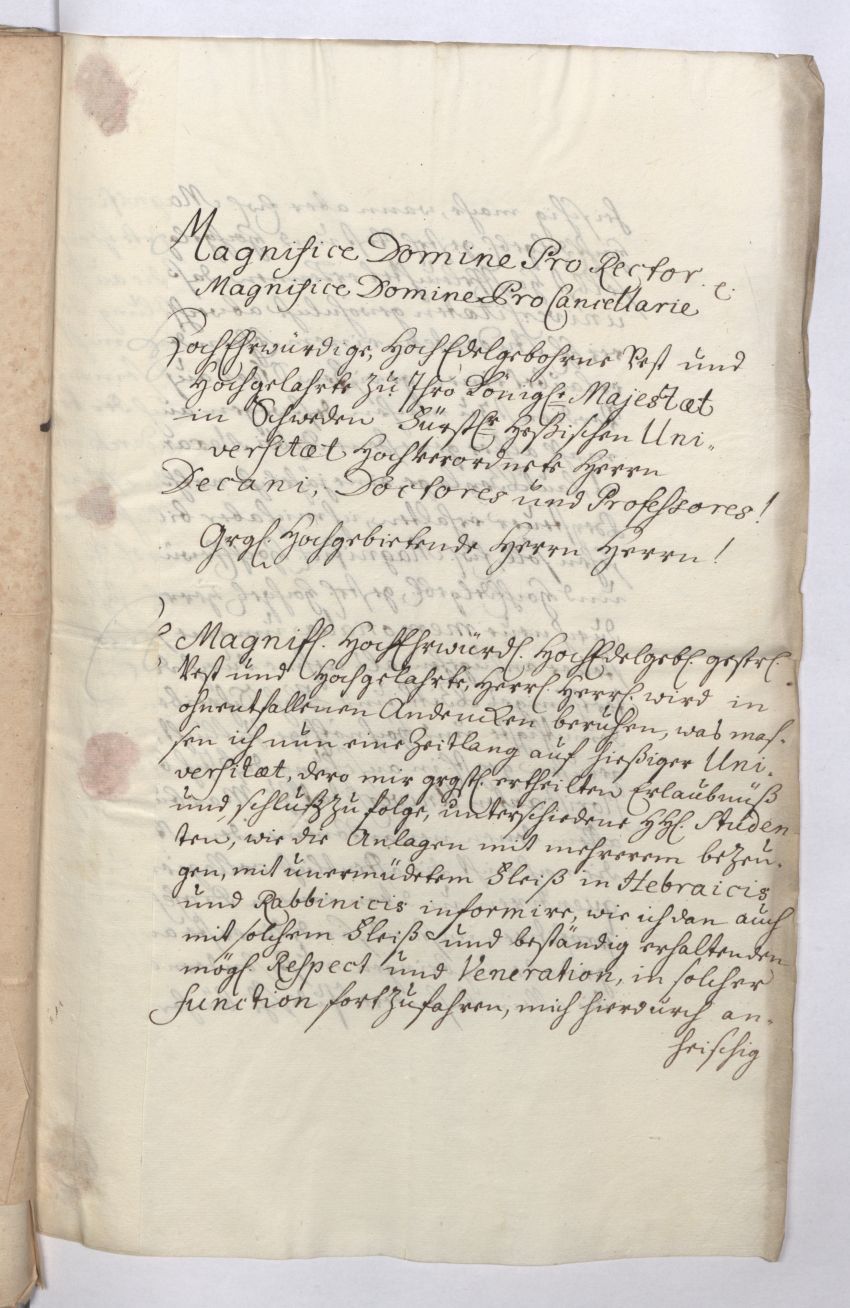 Magnifice Domine Pro Rector. e.
Magnifice Domine Pro Cancellarie
HochEhrwürdige, HochEdelgebohrne Vest und
Hochgelahrte zu Ihro Königl. Majestæt
in Schweden Fürstl. Heßischen Uni-
versitæt Hochverordnete Herrn
Decani, Doctores und Professores!
Grgst. Hochgebietende Herrn Herrn!
Magnif. HochEhrwürd. HochEdelgeb. gestr.
Vest und Hochgelahrte, Herrl. Herrl. wird in
ohnentfallenen Andencken beruhen, was mas-
sen ich nun eine Zeitlang auf hießiger Uni-
versitæt, dero mir grgst. ertheilten Erlaubnüß
und schluß zu folge, unterschiedene HH. Studen
ten, wie die Anlagen mit mehrerem bezeu-
gen, mit unermüdetem Fleiß in Hebraicis
und Rabbinicis informire, wie ich dan auch
mit solchem Fleiß und beständig erhaltenden
mögl. Respect und Veneration, in solcher
function fortzufahren, mich hierdurch an-
heischig